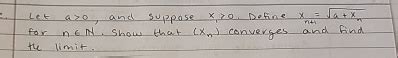 Let a>0, and suppose x₁>0. Define xₙ₊₁ = √(a+xₙ)
for n∈ℕ. Show that (xₙ) converges and find
the limit.